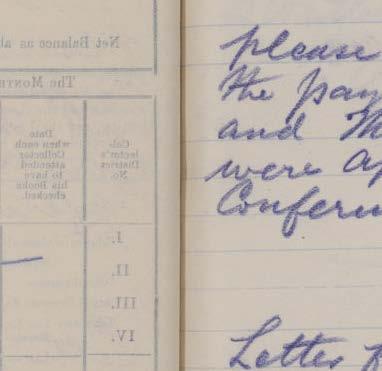 Net Balance as
The Month
Date
when each
Collector
attended
to have
his Books
checked.
Col-
lector's
District
No.
I.
II.
III.
IV.
please
the
and
were
Letter